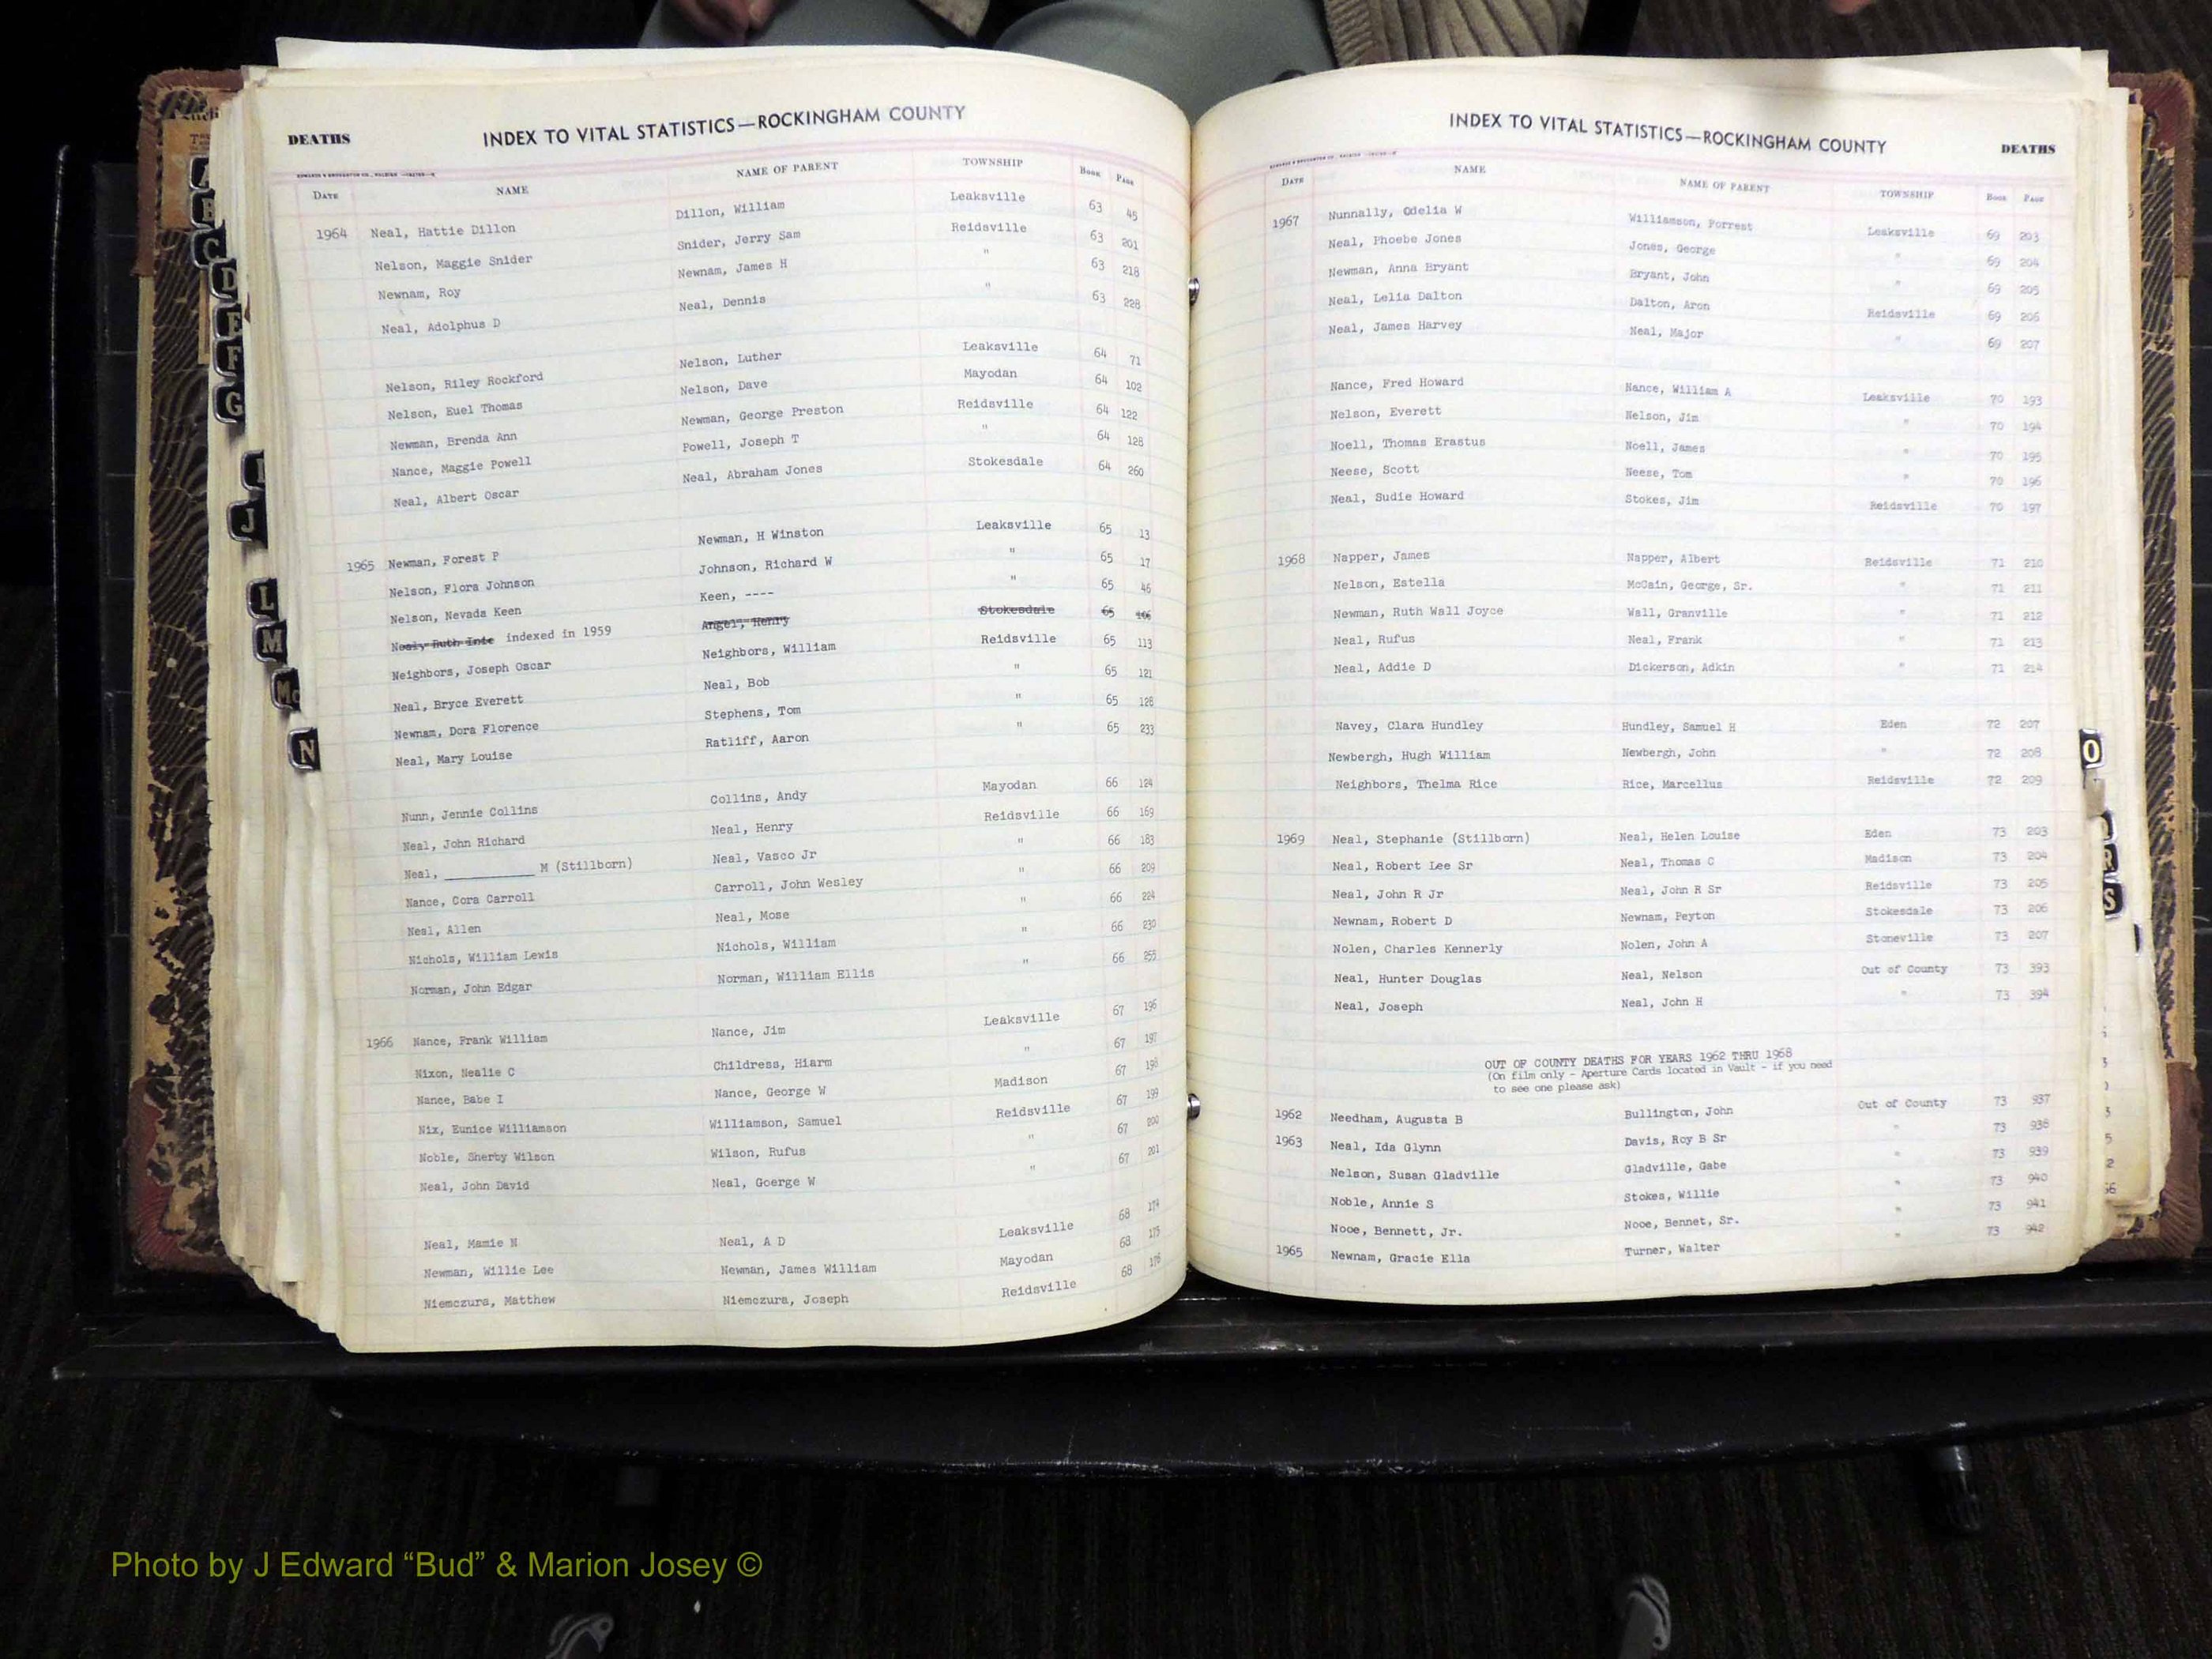 DEATHS
INDEX TO VITAL STATISTICS—ROCKINGHAM COUNTY
DATE NAME NAME OF PARENT TOWNSHIP BOOK PAGE
1964 Neal, Hattie Dillon Dillon, William Leaksville 63 45
Nelson, Maggie Snider Snider, Jerry Sam Reidsville 63 201
Newnam, Roy Newnam, James H " 63 218
Neal, Adolphus D Neal, Dennis " 63 228
Nelson, Riley Rockford Nelson, Luther Leaksville 64 71
Nelson, Euel Thomas Nelson, Dave Mayodan 64 102
Newman, Brenda Ann Newman, George Preston Reidsville 64 122
Nance, Maggie Powell Powell, Joseph T " 64 128
Neal, Albert Oscar Neal, Abraham Jones Stokesdale 64 260
1965 Newman, Forest P Newman, H Winston Leaksville 65 13
Nelson, Flora Johnson Johnson, Richard W " 65 17
Nelson, Nevada Keen Keen, ---- " 65 46
indexed in 1959 Angel, Henry Stokesdale 65
Neighbors, Joseph Oscar Neighbors, William Reidsville 65 113
Neal, Bryce Everett Neal, Bob " 65 121
Newnam, Dora Florence Stephens, Tom " 65 128
Neal, Mary Louise Ratliff, Aaron " 65 233
Nunn, Jennie Collins Collins, Andy Mayodan 66 124
Neal, John Richard Neal, Henry Reidsville 66 169
Neal, ____________ M (Stillborn) Neal, Vasco Jr " 66 183
Nance, Cora Carroll Carroll, John Wesley " 66 209
Neal, Allen Neal, Mose " 66 224
Nichols, William Lewis Nichols, William " 66 230
Norman, John Edgar Norman, William Ellis " 66 255
1966 Nance, Frank William Nance, Jim Leaksville 67 196
Nixon, Nealie C Childress, Hiarm " 67 197
Nance, Babe I Nance, George W Madison 67 198
Nix, Eunice Williamson Williamson, Samuel Reidsville 67 199
Noble, Sherby Wilson Wilson, Rufus " 67 200
Neal, John David Neal, Goerge W " 67 201
Neal, Mamie N Neal, A D Leaksville 68 174
Newman, Willie Lee Newman, James William Mayodan 68 175
Niemczura, Matthew Niemczura, Joseph Reidsville 68 176
INDEX TO VITAL STATISTICS—ROCKINGHAM COUNTY
DEATHS
DATE NAME NAME OF PARENT TOWNSHIP BOOK PAGE
1967 Nunnally, Odelia W Williamson, Forrest Leaksville 69 203
Neal, Phoebe Jones Jones, George " 69 204
Newman, Anna Bryant Bryant, John " 69 205
Neal, Lelia Dalton Dalton, Aron Reidsville 69 206
Neal, James Harvey Neal, Major " 69 207
Nance, Fred Howard Nance, William A Leaksville 70 193
Nelson, Everett Nelson, Jim " 70 194
Noell, Thomas Erastus Noell, James " 70 195
Neese, Scott Neese, Tom " 70 196
Neal, Sudie Howard Stokes, Jim Reidsville 70 197
1968 Napper, James Napper, Albert Reidsville 71 210
Nelson, Estella McCain, George, Sr. " 71 211
Newman, Ruth Wall Joyce Wall, Granville " 71 212
Neal, Rufus Neal, Frank " 71 213
Neal, Addie D Dickerson, Adkin " 71 214
Navey, Clara Hundley Hundley, Samuel H Eden 72 207
Newbergh, Hugh William Newbergh, John " 72 208
Neighbors, Thelma Rice Rice, Marcellus Reidsville 72 209
1969 Neal, Stephanie (Stillborn) Neal, Helen Louise Eden 73 203
Neal, Robert Lee Sr Neal, Thomas C Madison 73 204
Neal, John R Jr Neal, John R Sr Reidsville 73 205
Newnam, Robert D Newnam, Peyton Stokesdale 73 206
Nolen, Charles Kennerly Nolen, John A Stoneville 73 207
Neal, Hunter Douglas Neal, Nelson Out of County 73 393
Neal, Joseph Neal, John H " 73 394
OUT OF COUNTY DEATHS FOR YEARS 1962 THRU 1968
(On film only - Aperture Cards located in Vault - if you need
to see one please ask)
1962 Needham, Augusta B Bullington, John Out of County 73 937
1963 Neal, Ida Glynn Davis, Roy B Sr " 73 938
Nelson, Susan Gladville Gladville, Gabe " 73 939
Noble, Annie S Stokes, Willie " 73 940
Nooe, Bennett, Jr. Nooe, Bennet, Sr. " 73 941
1965 Newnam, Gracie Ella Turner, Walter " 73 942
A
B
C
D
E
F
G
I
J
L
M
Mc
N
O
R
S
Photo by J Edward “Bud” & Marion Josey ©